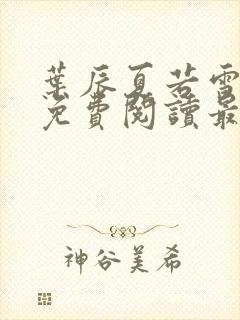 葉辰夏若雪
免費閱讀最
神谷美希